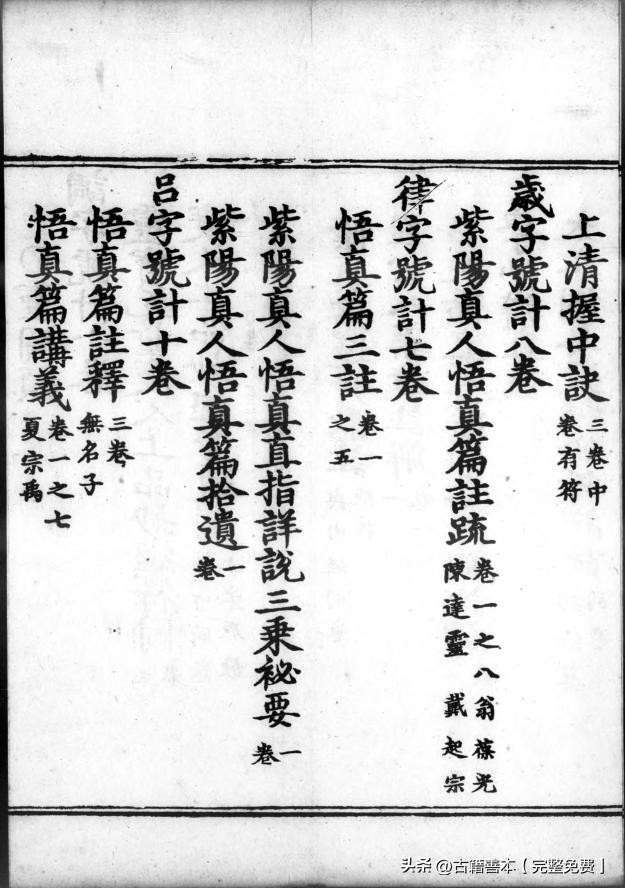 上清握中訣 三卷中卷有符
歲字號計八卷
紫陽真人悟真篇註疏 卷一之八翁葆光陳達靈 戴起宗
律字號計七卷
悟真篇三註 卷一之五
紫陽真人悟真直指詳說三乘祕要 一卷
紫陽真人悟真篇拾遺 一卷
吕字號計十卷
悟真篇註釋 三卷無名子
悟真篇講義 卷一之七夏宗禹
头条 @古籍善本【完整免费】